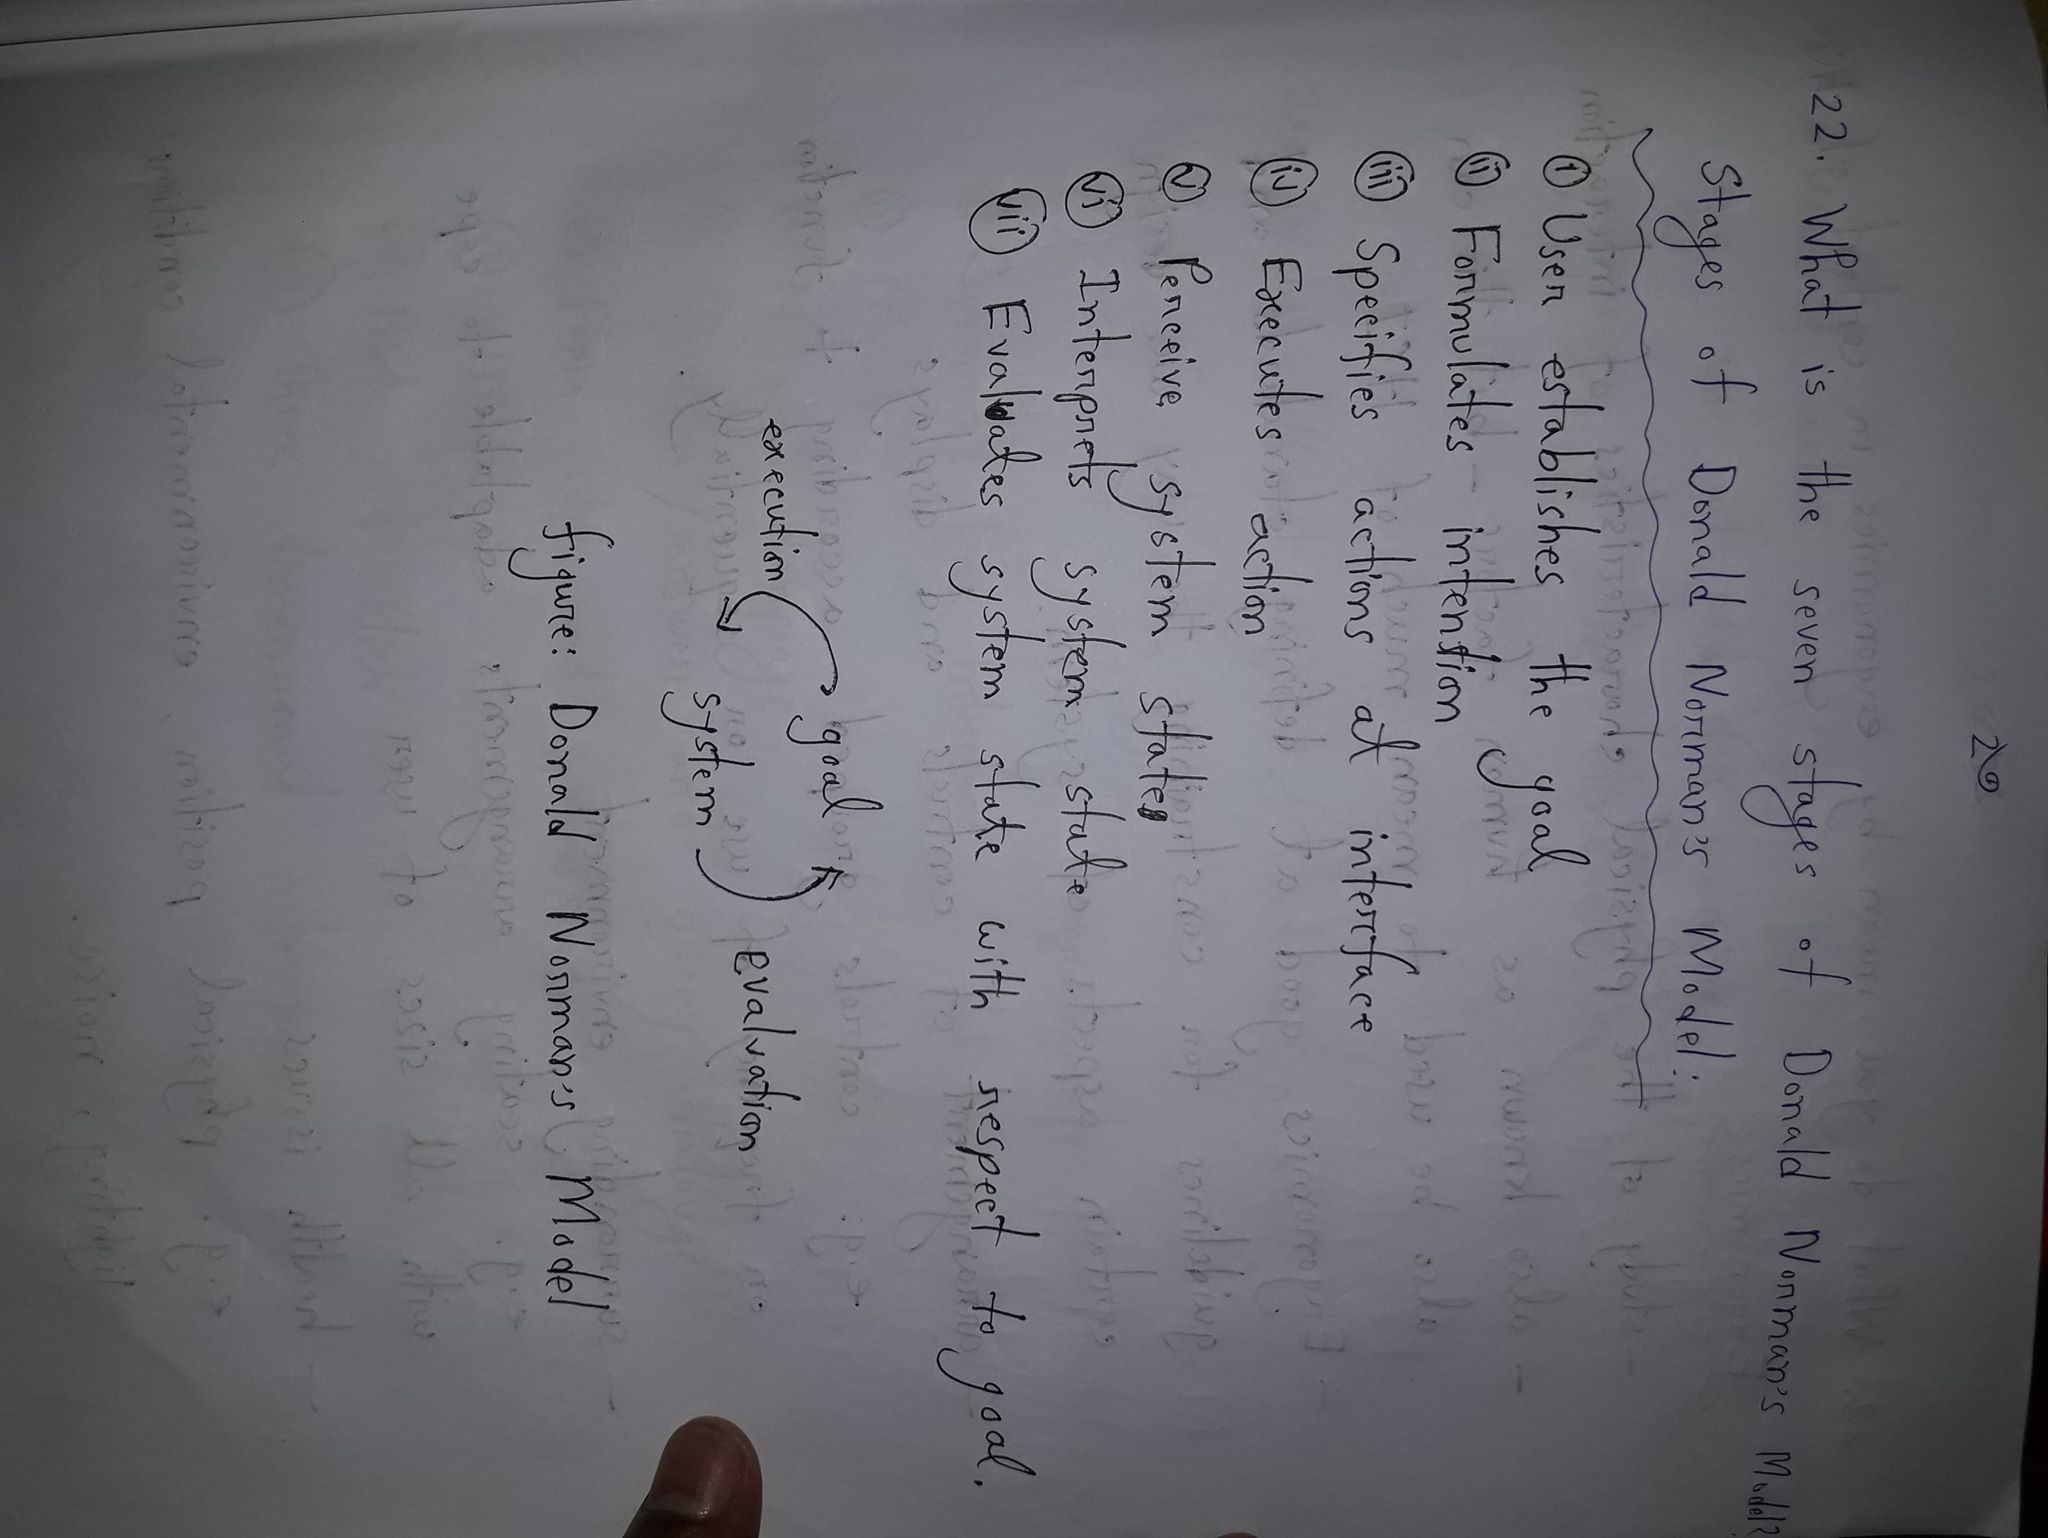 22. What is the seven stages of Donald Norman's Model?
Stages of Donald Norman's Model:
i User establishes the goal
ii Formulates intention
iii Specifies actions at interface
iv Executes action
v Perceive system state
vi Interprets system state
vii Evaluates system state with respect to goal.
goal
execution
evaluation
system
figure: Donald Norman's Model